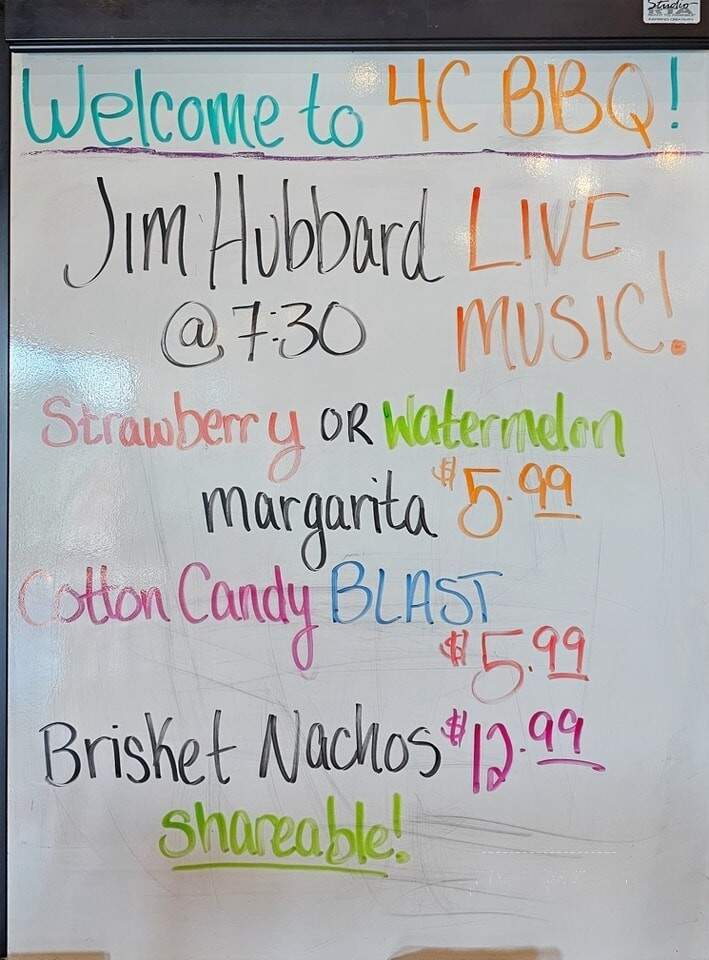 Studio
RTA
Welcome to 4C BBQ!
Jim Hubbard LIVE
@ 7:30 MUSIC!
Strawberry OR Watermelon
margarita $5.99
Cotton Candy BLAST
$5.99
Brisket Nachos $12.99
shareable!